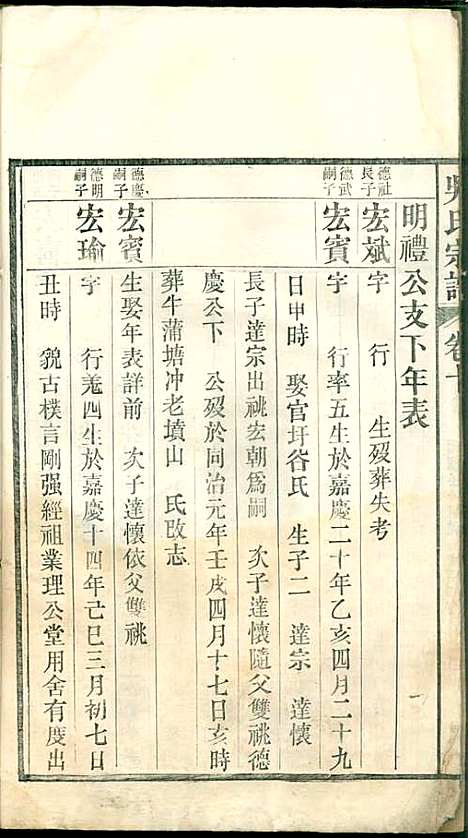 吳氏宗譜 卷十
明禮公支下年表
德社長子 宏斌 字 行 生歿葬失考
德武嗣子 宏賓 字 行率五生於嘉慶二十年乙亥四月二十九
日申時 娶官圩谷氏 生子二 達宗 達懷
長子達宗出祧宏朝爲嗣 次子達懷隨父雙祧德
慶公下 公歿於同治元年壬戌四月十七日亥時
葬牛蒲塘冲老墳山 氏改志
德慶嗣子 宏賓 生娶年表詳前 次子達懷依父雙祧
德明嗣子 宏瑜 字 行羗四生於嘉慶十四年己巳三月初七日
丑時 貌古樸言剛强經祖業理公堂用舍有度出
一